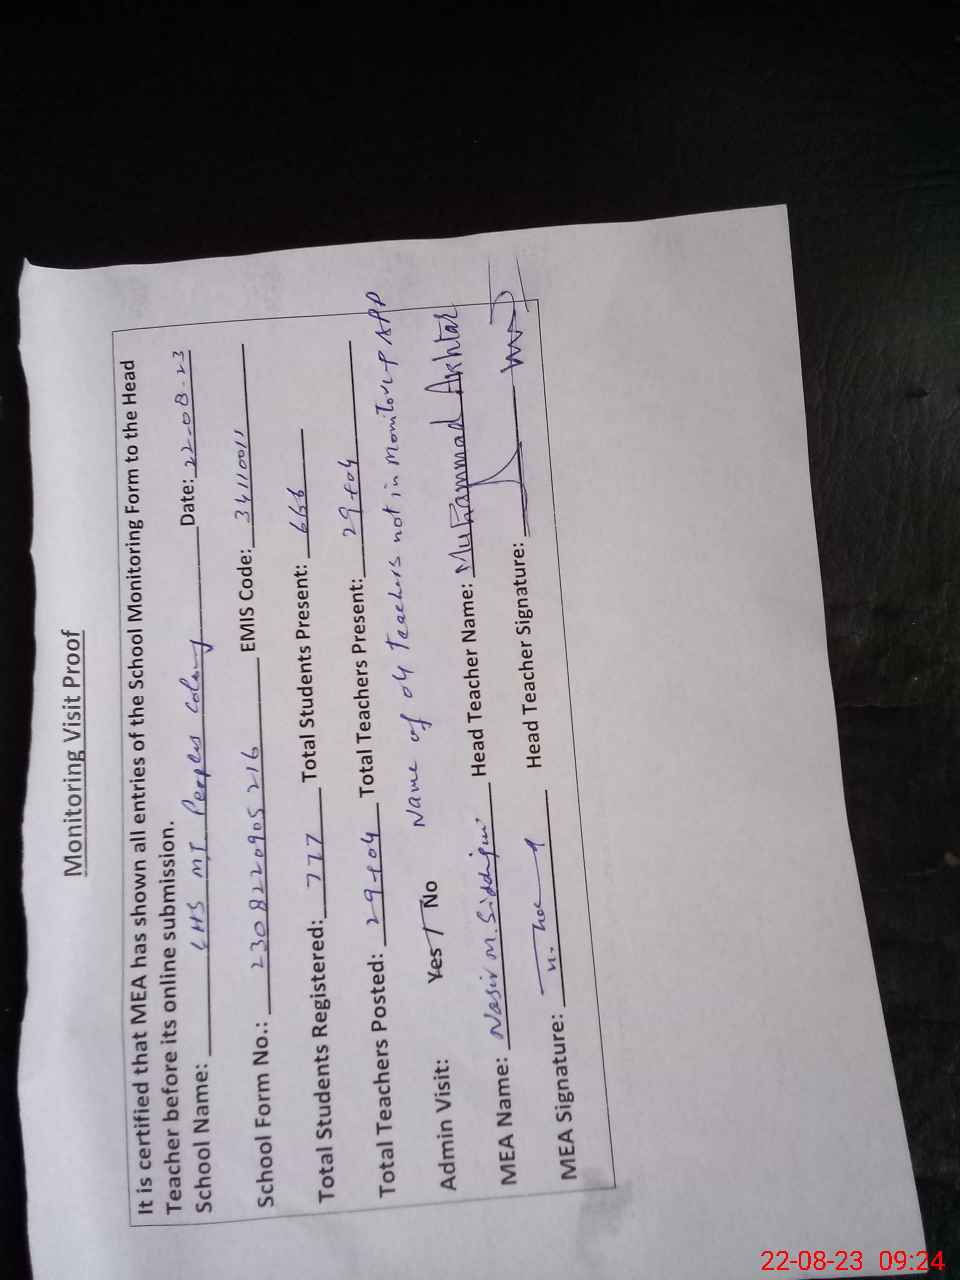 Monitoring Visit Proof
It is certified that MEA has shown all entries of the School Monitoring Form to the Head
Teacher before its online submission.
School Name: GHS M.T. Peoples Colony Date: 22-08-23
School Form No.: 230822090 5216 EMIS Code: 34110011
Total Students Registered: 777 Total Students Present: 666
Total Teachers Posted: 29+04 Total Teachers Present: 29+04
Admin Visit: Yes / No Name of 04 Teachers not in Monitor APP
MEA Name: Nasir M. Siddiqui Head Teacher Name: Muhammad Akhtar
MEA Signature: Head Teacher Signature:
22-08-23 09:24